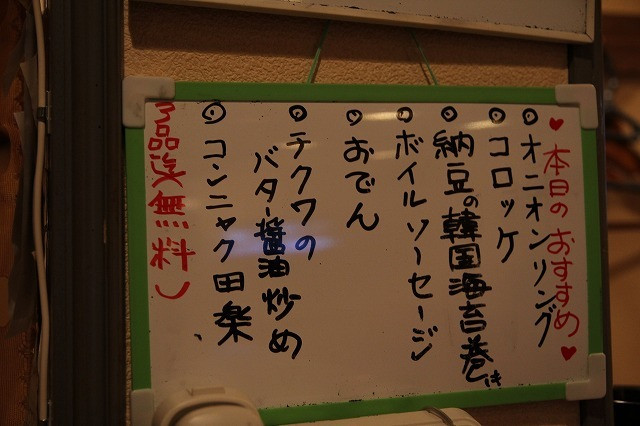 ♥本日のおすすめ♥
◎オニオンリング
◎コロッケ
◎納豆の韓国海苔巻
◎ボイルソーセージ
◎おでん
◎チクワの
バター醤油炒め
◎コンニャク田楽
無料)